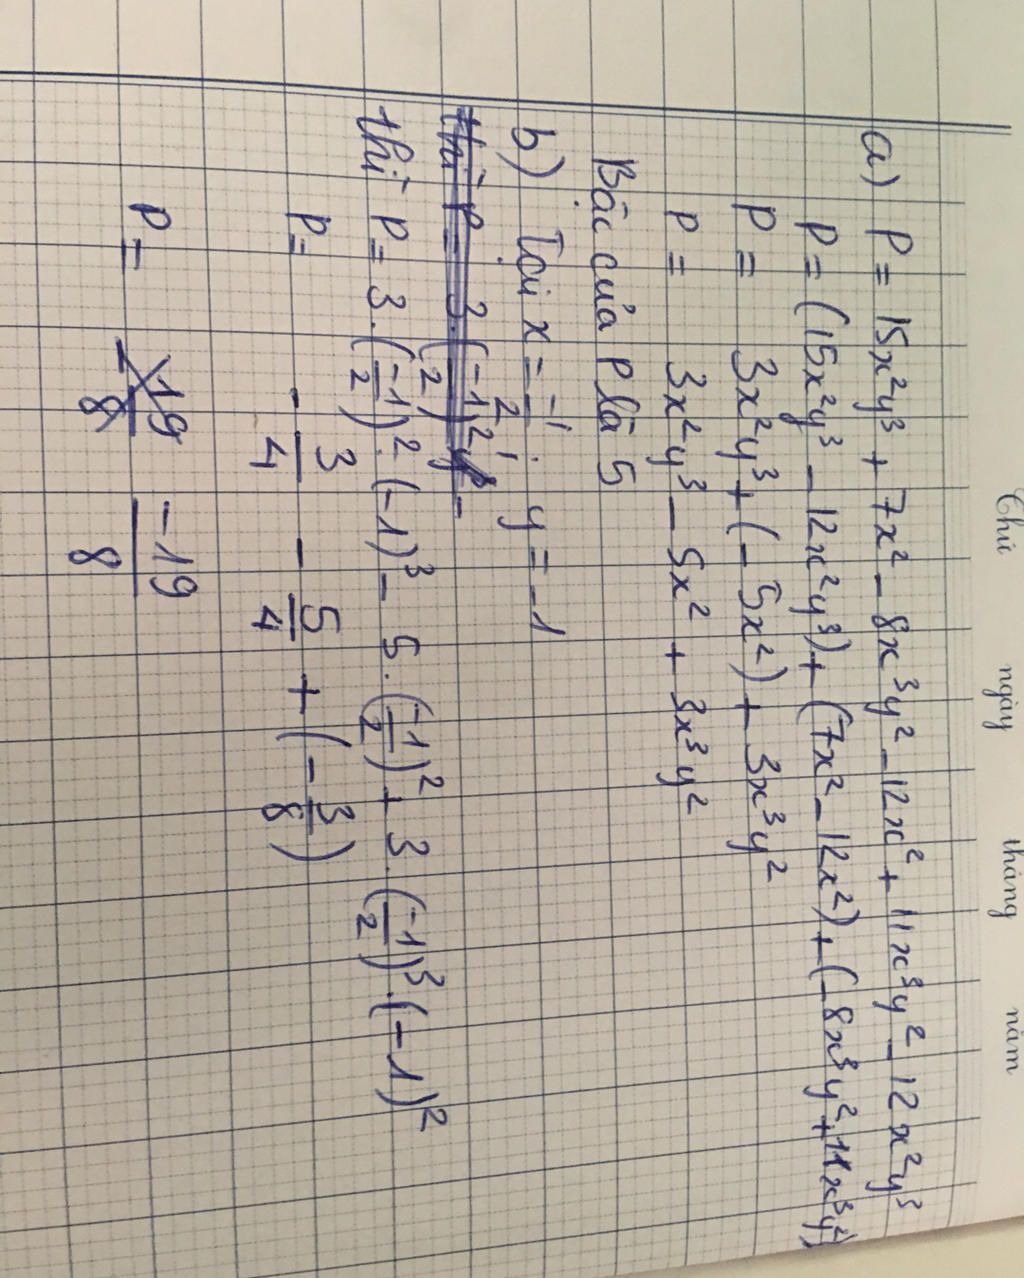 Thứ ngày tháng năm
a) P = 15x²y³ + 7x² - 8x³y² - 12x² + 11x³y² - 12x²y³
P = (15x²y³ - 12x²y³) + (7x² - 12x²) + (-8x³y² + 11x³y²)
P = 3x²y³ + (-5x²) + 3x³y²
P = 3x²y³ - 5x² + 3x³y²
Bậc của P là 5
b) Tại x = -1/2 ; y = -1
thì P = 3.(-1/2)²y³ -
thì P = 3.(-1/2)².(-1)³ - 5.(-1/2)² + 3.(-1/2)³.(-1)²
P = -3/4 - 5/4 + (-3/8)
P = -19/8 -19/8